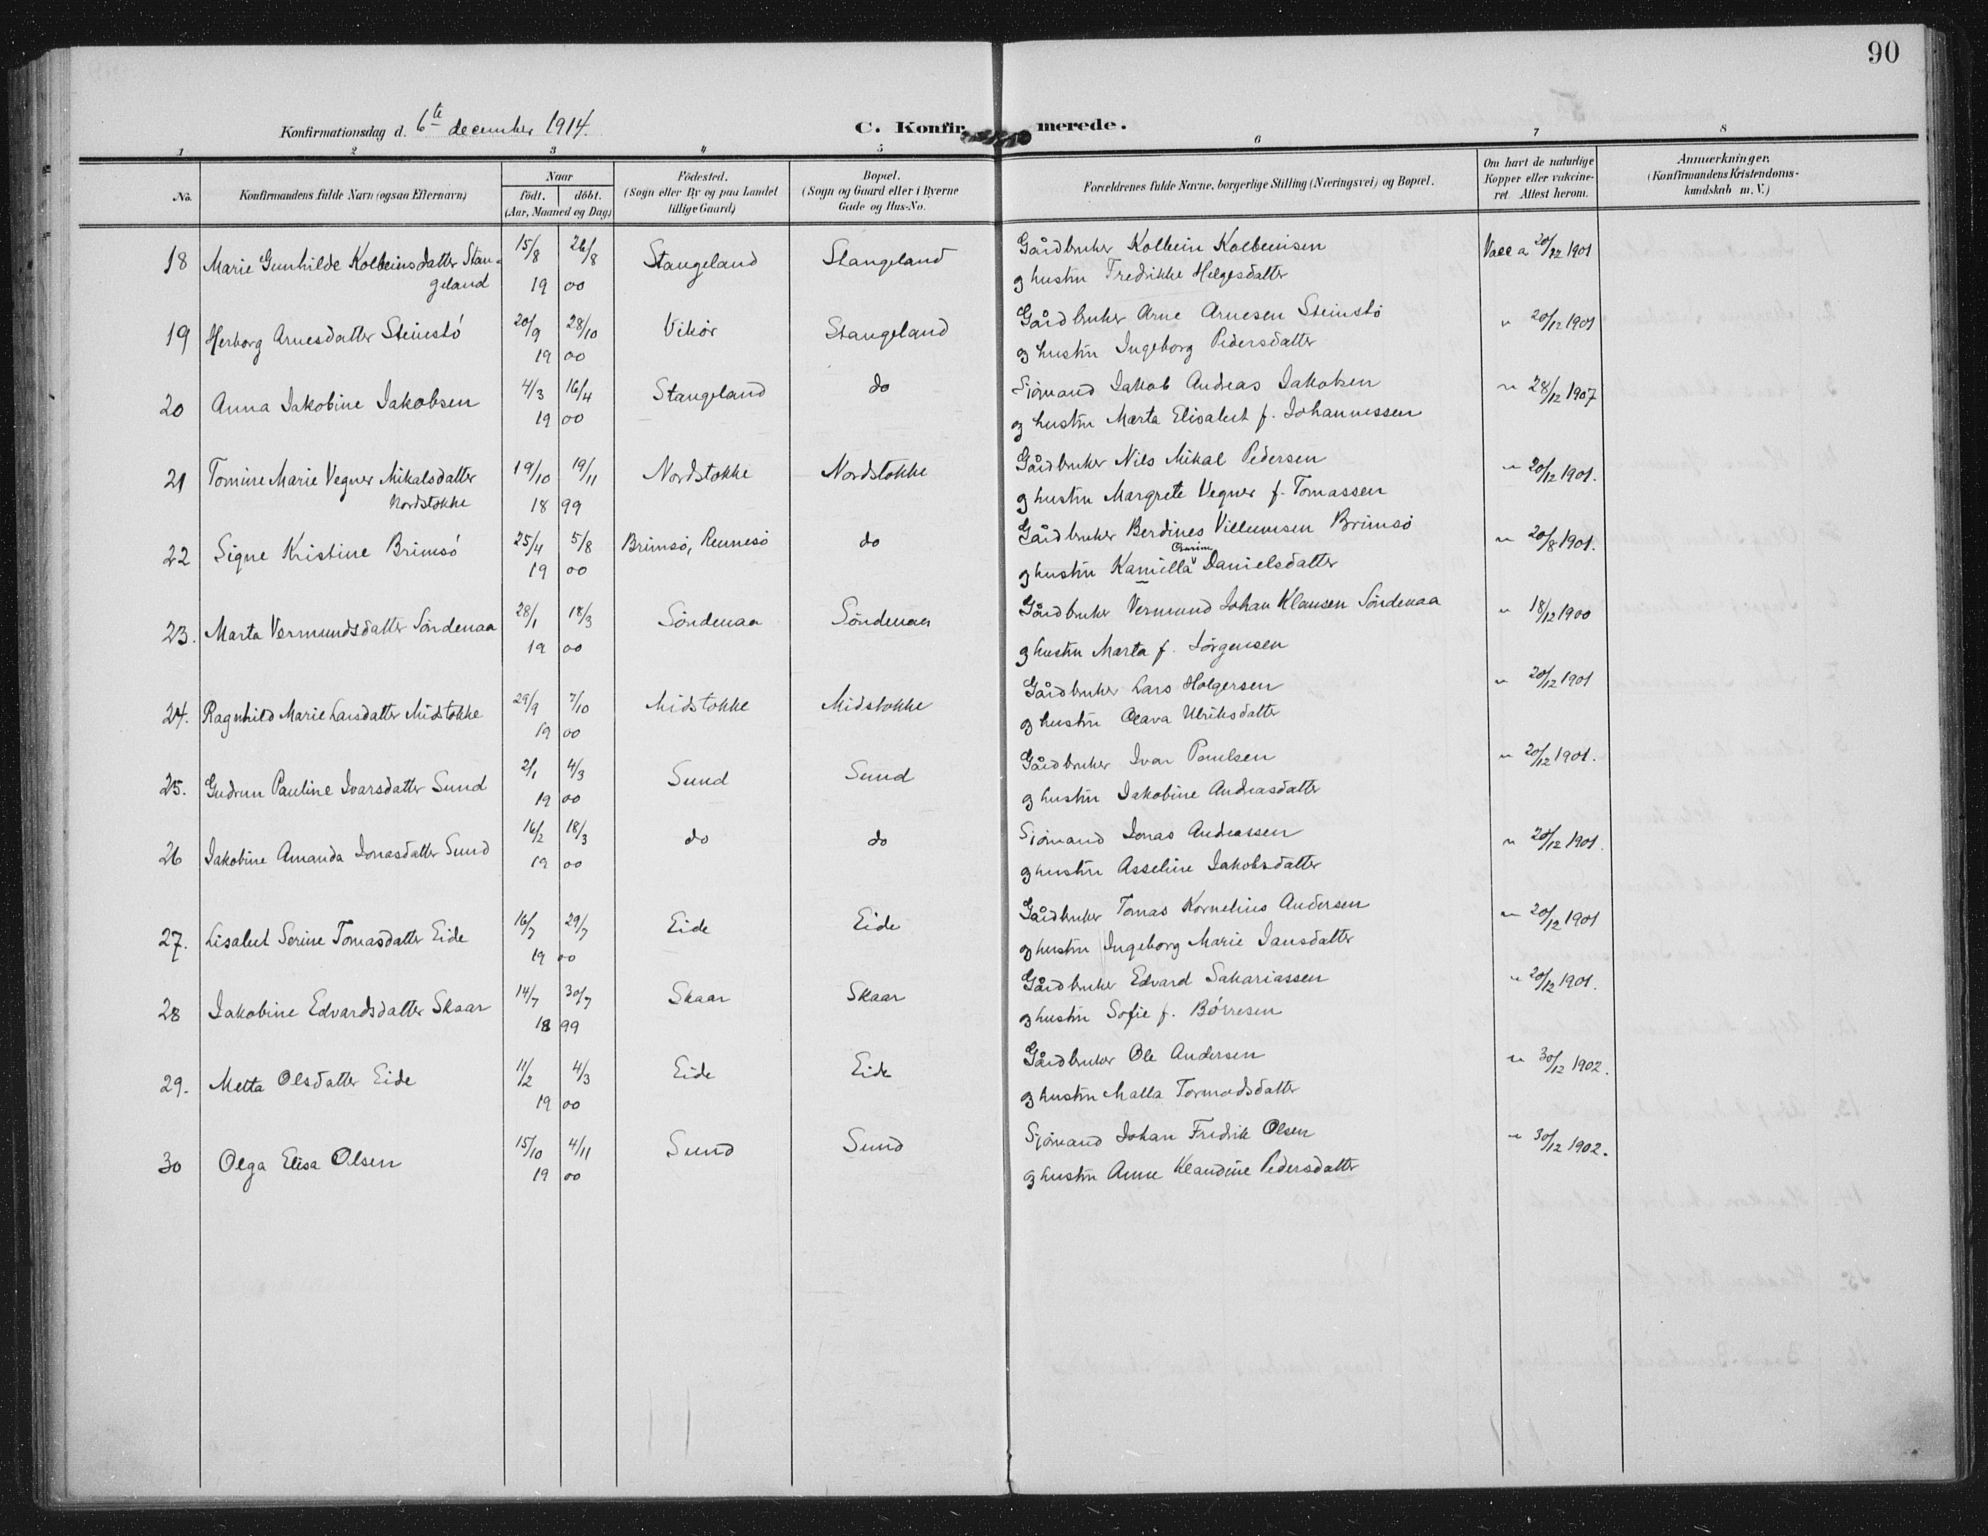 90
Konfirmationsdag d. 6te december 1914.
C. Konfirmerede.
1 2 3 4 5 6 7 8
No. Konfirmandens fulde Navn (ogsaa Efternavn) Naar født. døbt. (Aar, Maaned og Dag) Fødested. (Sogn eller By og paa Landet tillige Gaard) Bopæl. (Sogn og Gaard eller i Byerne Gade og Hus-No. Forældrenes fulde Navne, borgerlige Stilling (Næringsvei) og Bopæl. Om havt de naturlige Kopper eller vakcineret Attest herom. Anmerkninger. (Konfirmandens Kristendomskundskab m. V.)
18 Marie Gunhilde Kolbeinsdatter Stan- 15/8 26/8 Stangeland Stangeland Gårdbruker Kolbein Kolbeinsen Vacc a 20/12 1901
geland 19 00 og hustru Fredrikke Helgesdatter
19 Herborg Arnesdatter Steinstö 20/9 28/10 Vikør Stangeland Gårdbruker Arne Arnesen Steinstö " 20/12 1901
19 00 og hustru Ingeborg Pedersdatter
20 Anna Jakobine Jakobsen 4/3 16/4 Stangeland do Sjømand Jakob Andreas Jakobsen " 28/12 1907
19 00 og hustru Marta Elisabet f. Johannessen
21 Tomine Marie Vegner Mikalsdatter 19/10 19/11 Nordstokke Nordstokke Gårdbruker Nils Mikal Pedersen " 20/12 1901.
Nordstokke 18 99 og hustru Margrete Vegner f. Tomassen
22 Signe Kristine Brimsö 25/4 5/8 Brimsö, Rennesö do Gårdbruker Berdines Villumsen Brimsö " 20/8 1901.
19 00 og hustru Kamilla Danielsdatter
23. Marta Vermundsdatter Söndenaa 28/1 18/3 Söndenaa Söndenaa Gårdbruker Vermund Johan Klausen Söndenaa " 18/12 1900
19 00 og hustru Marta f. Jörgensen
24. Ragnhild Marie Larsdatter Midstokke 29/9 7/10 Midstokke Midstokke Gårdbruker Lars Holgersen " 20/12 1901
19 00 og hustru Olava Ulriksdatter
25. Gudrun Pauline Ivarsdatter Sund 2/1 4/3 Sund Sund Gårdbruker Ivar Poulsen " 20/12 1901.
19 00 og hustru Jakobine Andreasdatter
26 Jakobine Amanda Jonasdatter Sund 16/2 18/3 do do Sjömand Jonas Andreassen " 20/12 1901.
19 00 og hustru Asseline Jakobsdatter
27. Lisabet Serine Tomasdatter Eide 16/7 29/7 Eide Eide Gårdbruker Tomas Kornelius Andersen " 20/12 1901
19 00 og hustru Ingeborg Marie Jansdatter
28 Jakobine Edvardsdatter Skaar 14/7 30/7 Skaar Skaar Gårdbruker Edvard Sakariassen " 20/12 1901.
18 99 og hustru Sofie f. Börresen
29. Metta Olsdatter Eide 11/2 4/3 Eide Eide Gårdbruker Ole Andersen " 30/12 1902.
19 00 og hustru Malla Tormodsdatter
30 Olga Elisa Olsen 15/10 4/11 Sund Sund Sjömand Johan Fredrik Olsen " 30/12 1902.
19 00 og hustru Anne Klaudine Pedersdatter